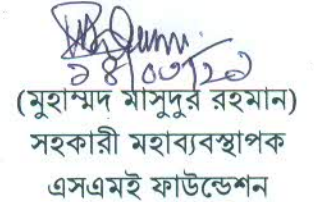 ১৪/০৩/২১
(মুহাম্মদ মাসুদুর রহমান)
সহকারী মহাব্যবস্থাপক
এসএমই ফাউন্ডেশন